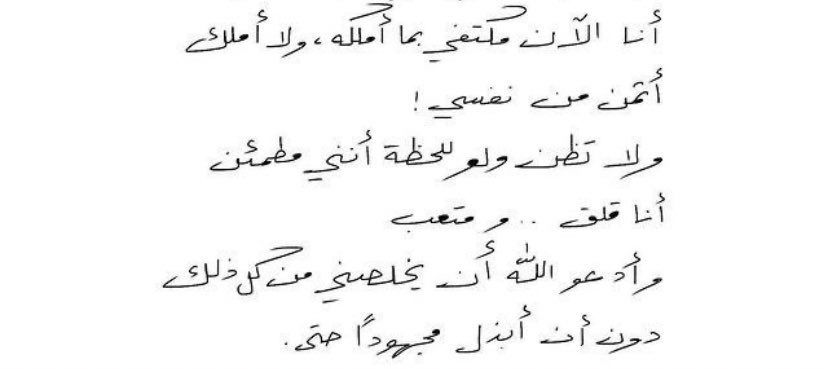 أنا الآن مكتفي بما أملكه، ولا أملك
أثمن من نفسي!
ولا تظن ولو للحظة أنني مطمئن
أنا قلق .. و متعب
وأدعو الله أن يخلصني من كل ذلك
دون أن أبذل مجهوداً حتى.